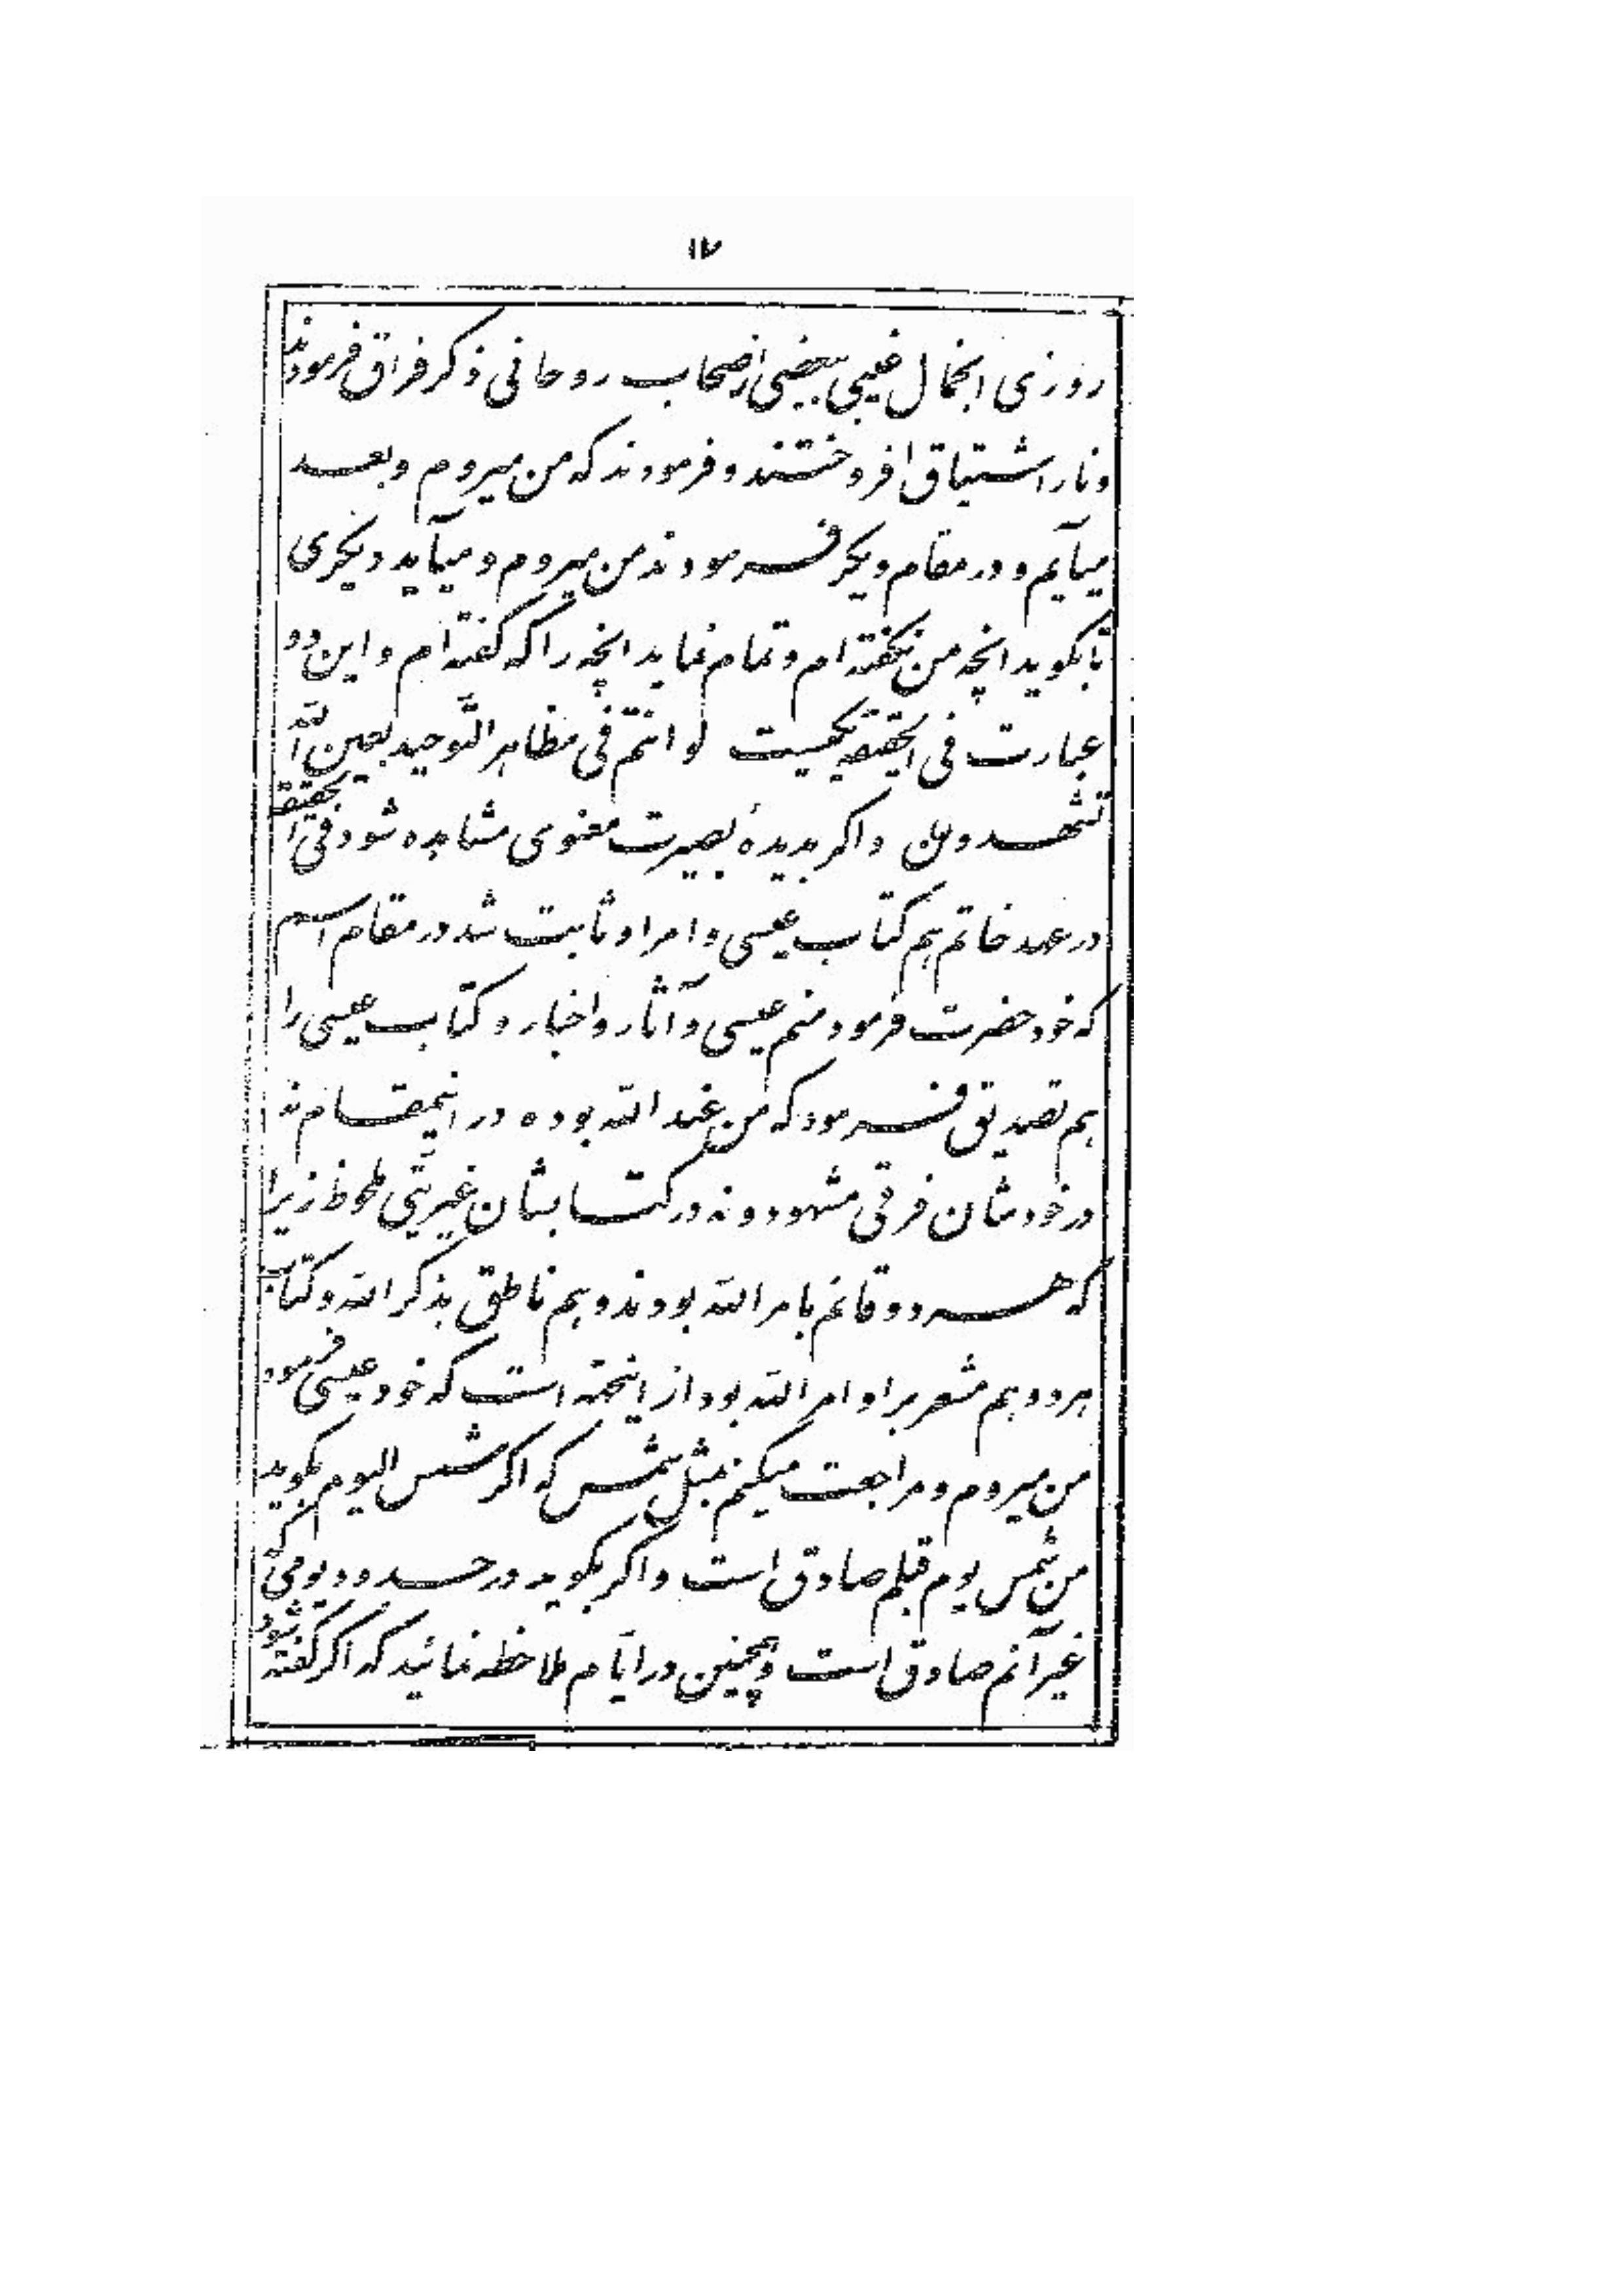 ١٧
روزی انجمال غیبی ببعضی از اصحاب روحانی ذکر فراق فرمودند
و نار اشتیاق افروختند و فرمودند که من میروم و بعد
میآیم و در مقام دیگر فرمودند من میروم و میآید دیگری
تا بگوید انچه من نگفته‌ام و تمام نماید انچه را که گفته‌ام و این دو
عبارت فی الحقیقه یکیست لو انتم فی مظاهر التّوحید بعین اللّه
تشهدون و اگر بدیدهٔ بصیرت معنوی مشاهده شود فی الحقیقه
در عهد خاتم هم کتاب عیسی و امر او ثابت شد در مقام اسم
که خود حضرت فرمود منم عیسی و آثار و اخبار و کتاب عیسی را
هم تصدیق فرمود که من عند اللّه بوده در اینمقام نه
در خودشان فرقی مشهود و نه در کتابشان غیریّتی ملحوظ زیرا
که هر دو قائم بامر اللّه بودند و هم ناطق بذکر اللّه و کتاب
هر دو هم مشعر بر اوامر اللّه بود از اینجهة است که خود عیسی فرمود
من میروم و مراجعت میکنم بمثل شمس که اگر شمس الیوم بگوید
من شمس یوم قبلم صادق است و اگر بگوید در حدود یومی که
غیر آنم صادق است و همچنین در ایّام ملاحظه نمائید که اگر گفته شود